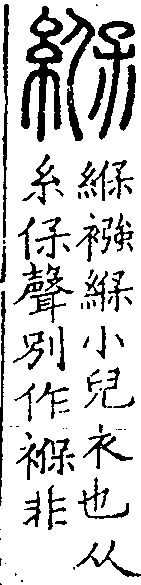 緥
緥襁緥小兒衣也从
糸保聲別作褓非